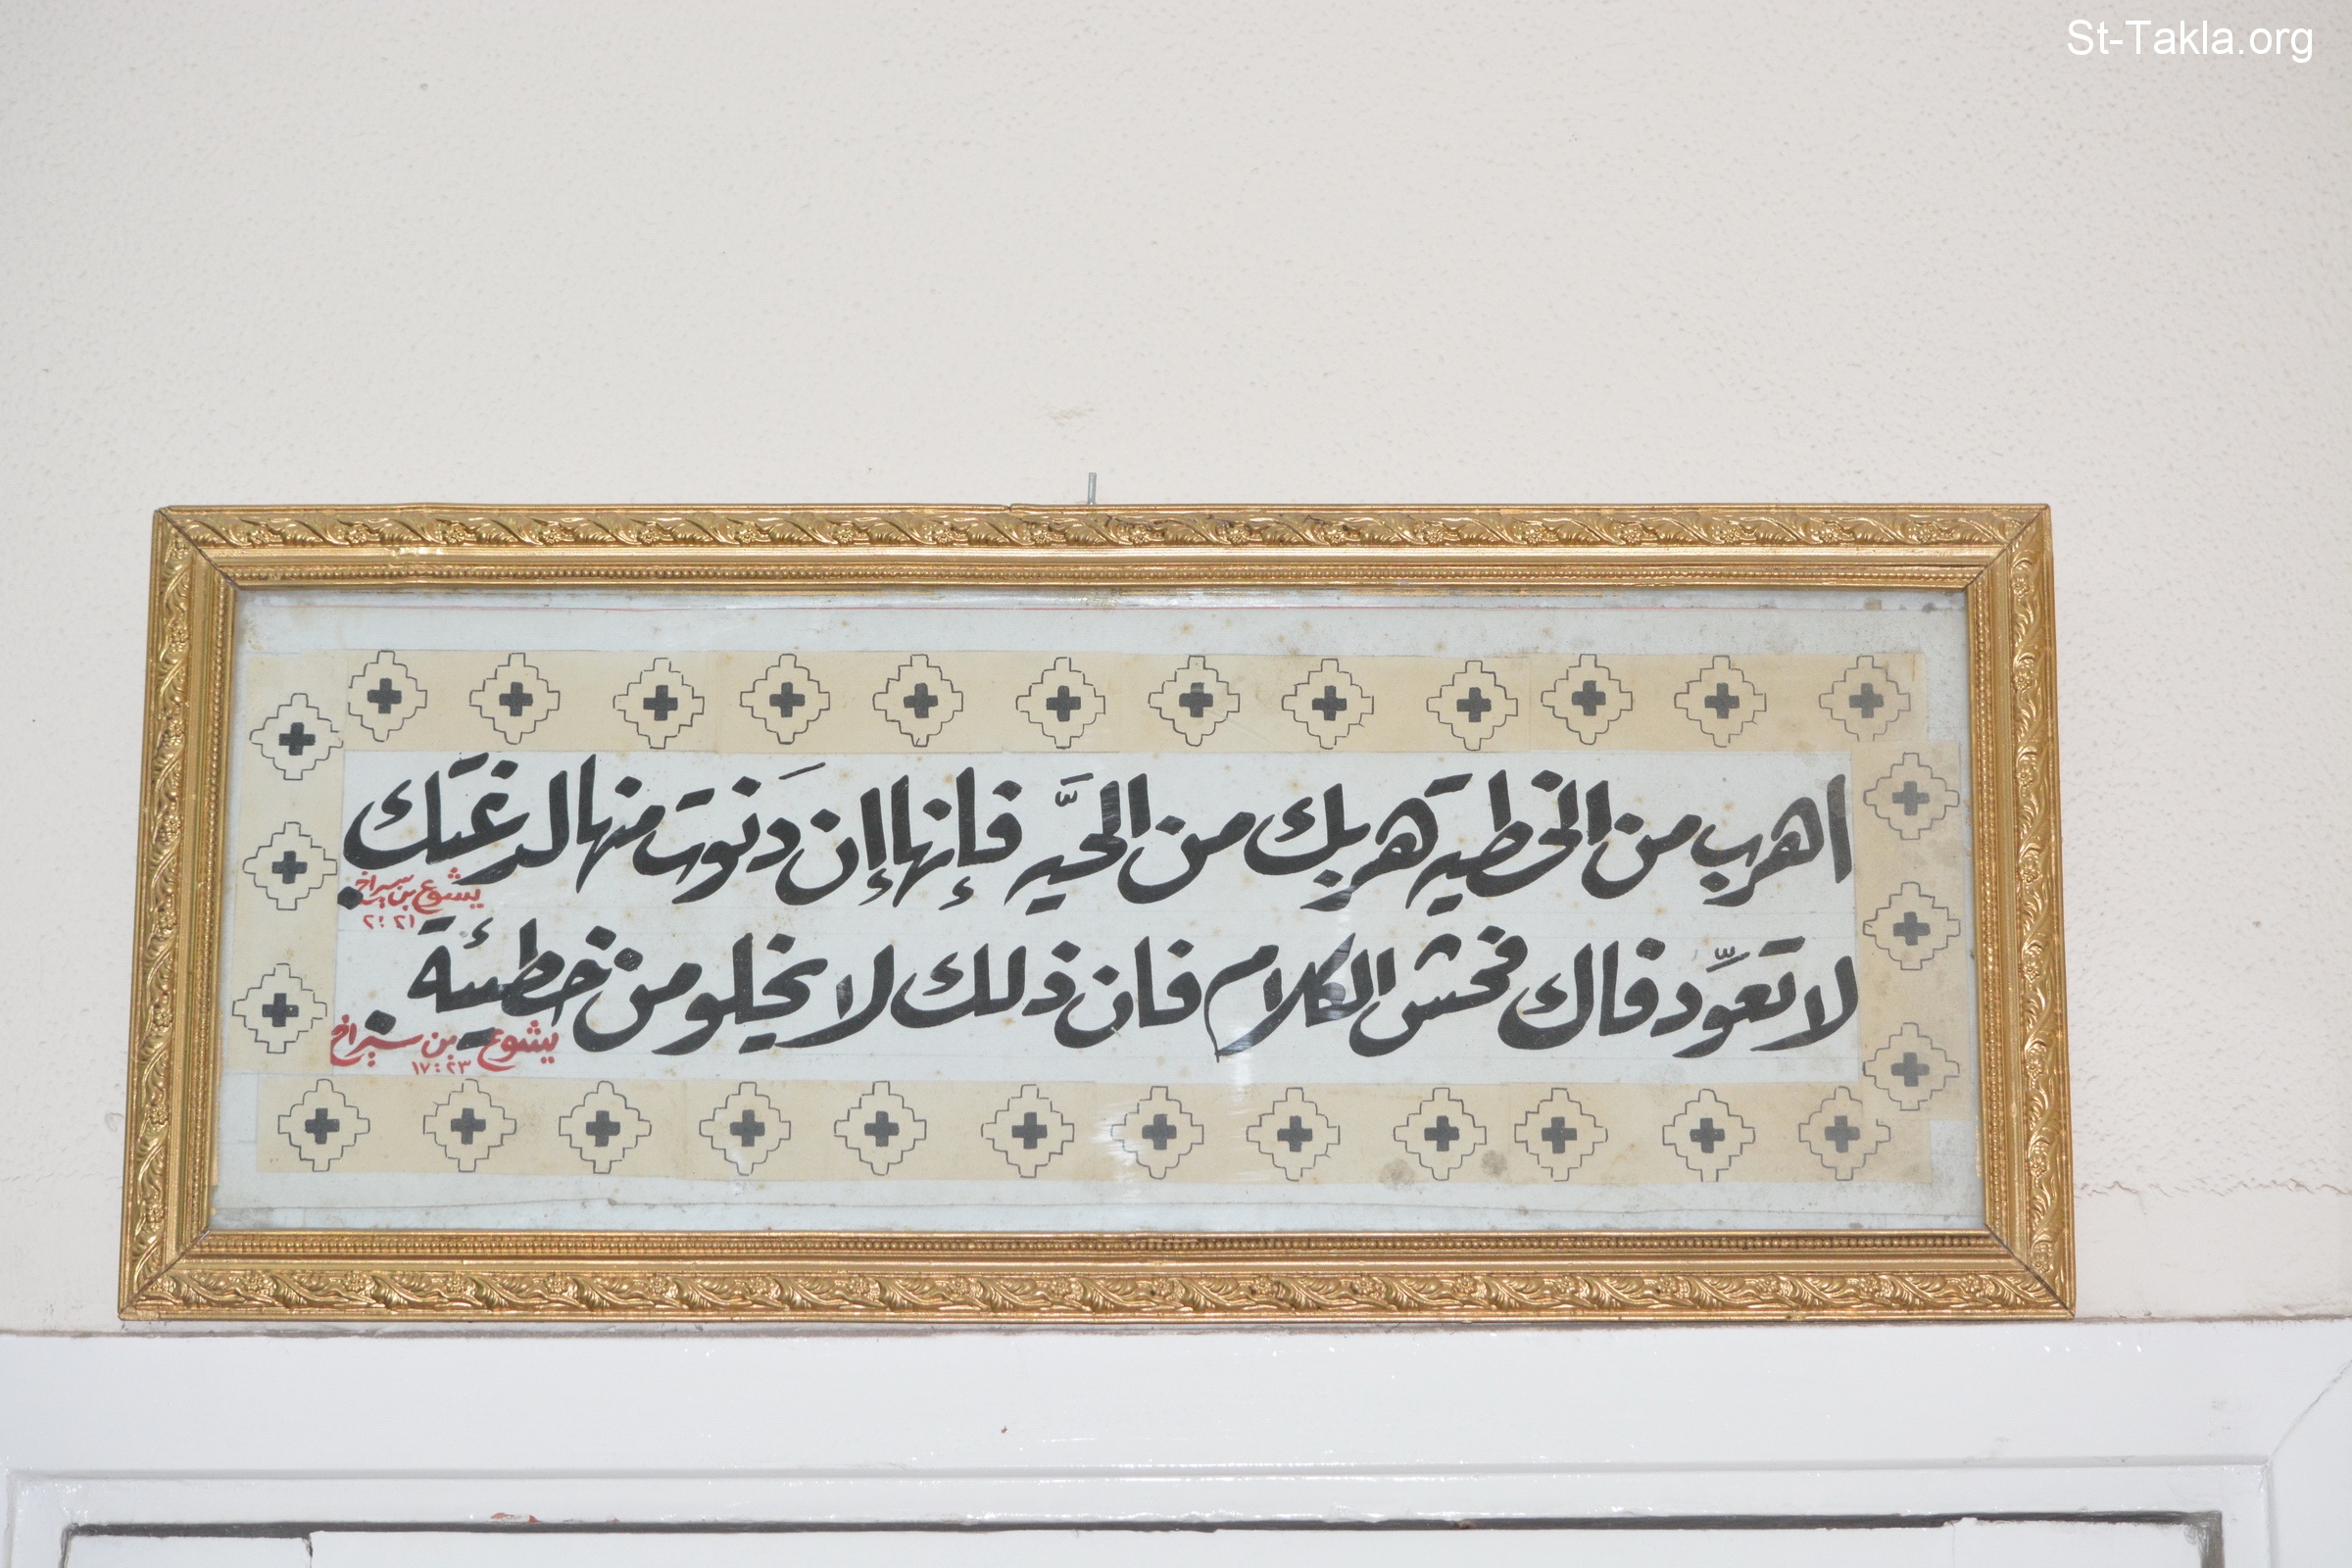 St-Takla.org
اهرب من الخطية هربك من الحيَّة فإنها إن دنوت منها لدغتك
يشوع بن سيراخ
٢:٢١
لا تعوِّد فاك فحش الكلام فان ذلك لا يخلو من خطيئة
يشوع بن سيراخ
١٧:٢٣